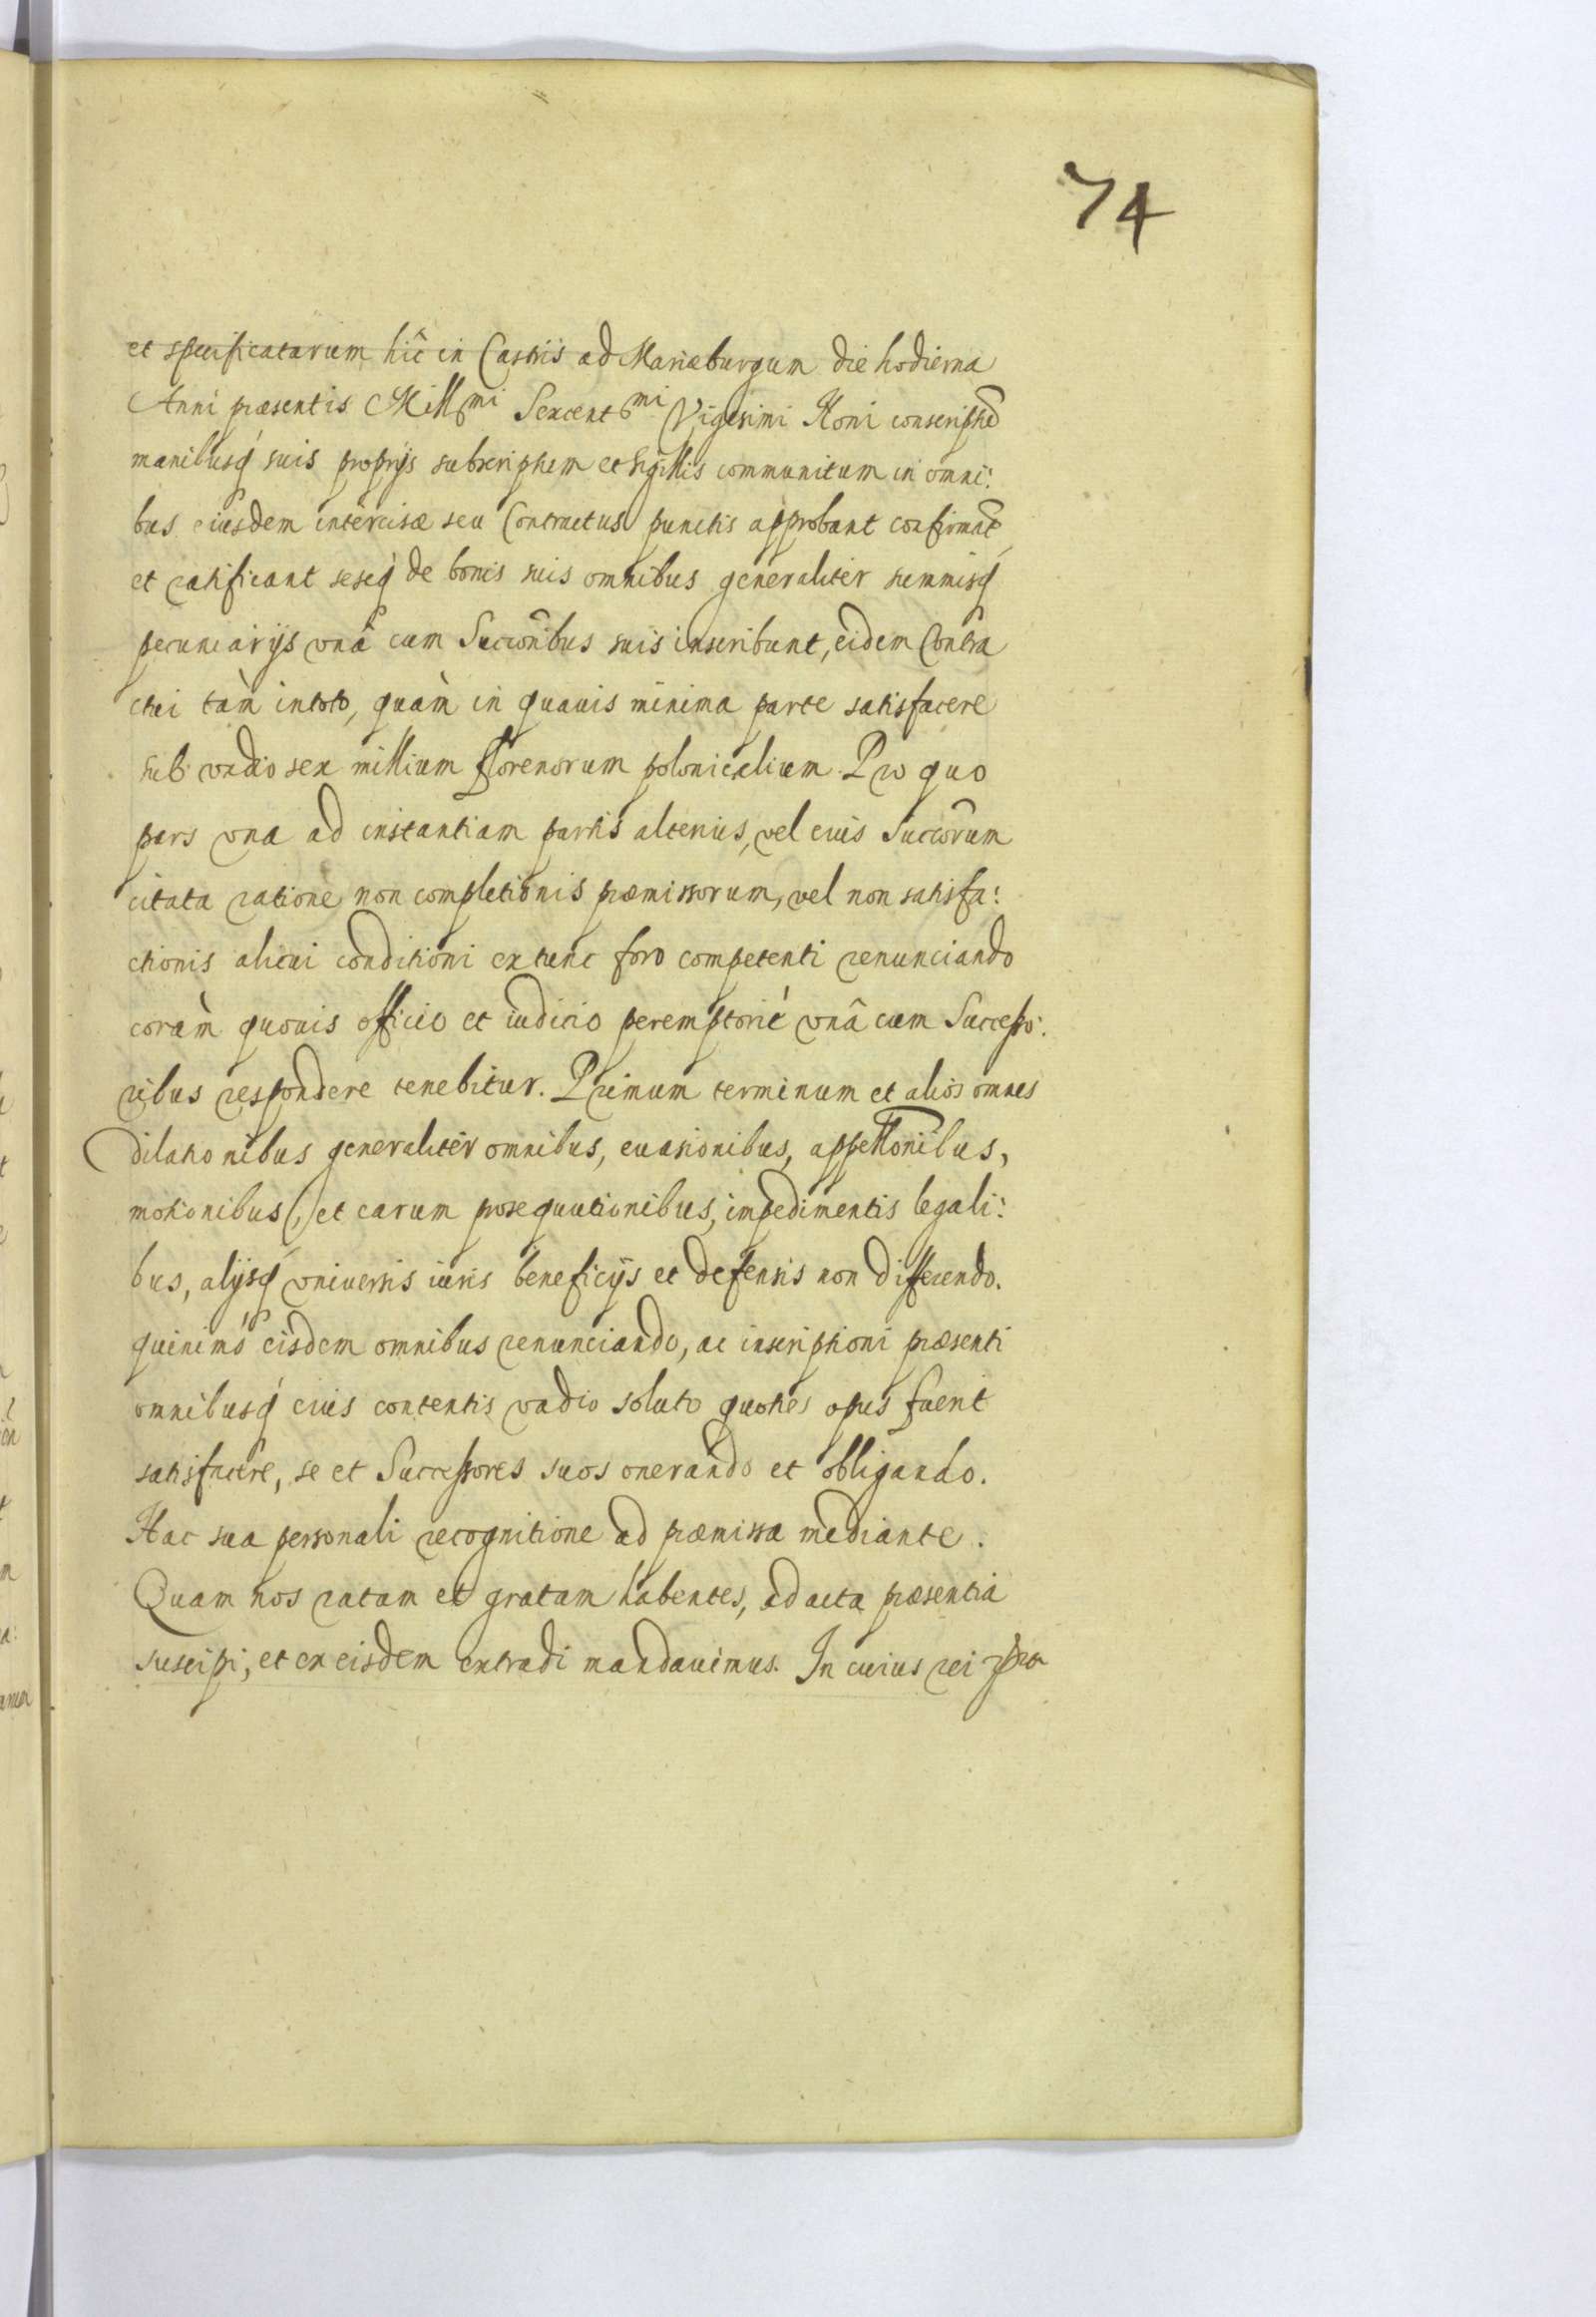 74
et specificatarum hîc in Castris ad Mariæburgum die hodierna
Anni præsentis Mill͠mi Sexcent͠mi Vigesimi Noni conscriptũ
manibusq́ suis proprijs subscriptum et sigillis communitum in omni:
bus eiusdem intercisæ seu Contractus punctis approbant confirmãt
et ratificant seseq́ de bonis suis omnibus generaliter summisq́
pecuniarijs vnâ cum Succoribus suis inscribunt, eidem Contra
ctui tàm in toto, quàm in quauis minima parte satisfacere
sub vadio sex millium florenorum polonicalium. Pro quo
pars vna ad instantiam partis alterius, vel eius Succorum
citata ratione non completionis præmissorum, vel non satisfa:
ctionis alicui conditioni extunc foro competenti renunciando
coràm quouis officio et iudicio peremptorié vnâ cum Successo:
ribus respondere tenebitur. Primum terminum et alios omnes
dilationibus generaliter omnibus, euasionibus, appellonibus,
motionibus, et earum prosequutionibus, impedimentis legali:
bus, alijsq́ vniuersis iuris beneficijs et defensis non differendo.
quinimó eisdem omnibus renunciando, ac inscriptioni præsenti
omnibusq́ eius contentis vadio soluto quoties opus fuerit
satisfacere, se et Successores suos onerando et obligando.
Hac sua personali recognitione ad præmissa mediante.
Quam nos ratam et gratam habentes, ad acta præsentia
suscipi, et ex eisdem extradi mandauimus. In cuius rei